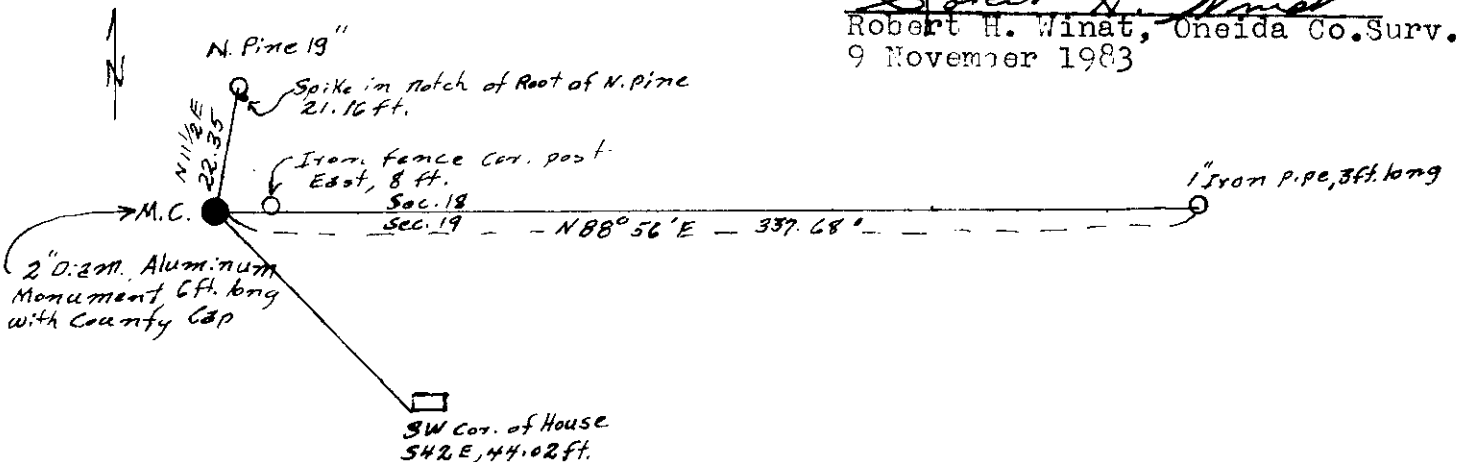 Robert H. Winat, Oneida Co.Surv.
9 November 1983
N
N. Pine 19"
Spike in notch of Root of N. Pine
21.16 ft.
N 11 1/2 E
22.35
Iron fence cor. post
East, 8 ft.
1" Iron pipe, 3ft. long
M.C.
Sec. 18
Sec. 19
N 88° 56' E
337.68'
2" Diam. Aluminum
Monument, 6ft. long
with County Cap
SW Cor. of House
S42E, 44.02ft.